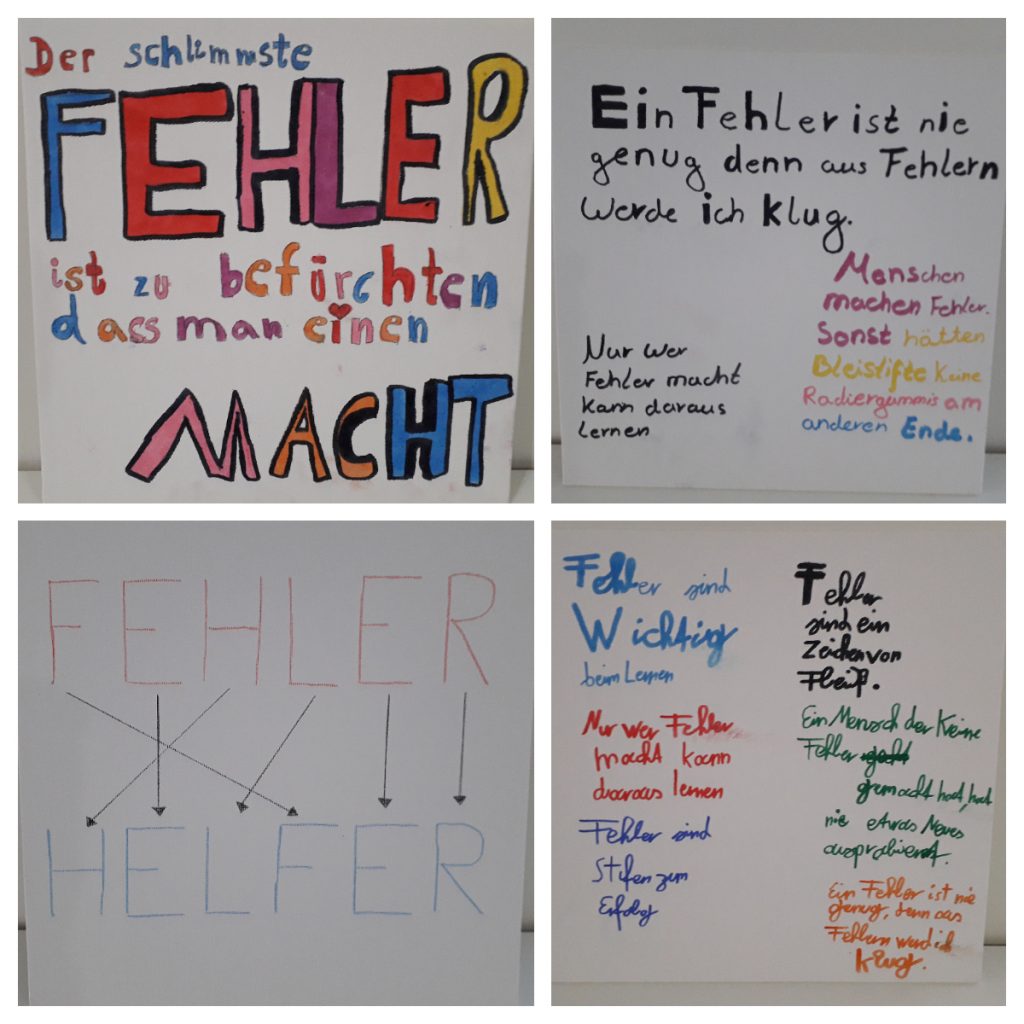 Der schlimmste
FEHLER
ist zu befürchten
dass man einen
MACHT
Ein Fehler ist nie
genug denn aus Fehlern
werde ich klug.
Nur wer
Fehler macht
kann daraus
lernen
Menschen
machen Fehler.
Sonst hätten
Bleistifte keine
Radiergummis am
anderen Ende.
FEHLER
HELFER
Fehler sind
Wichtig
beim Lernen
Nur wer Fehler
macht kann
daraus lernen
Fehler sind
Stifen zum
Erfolg
Fehler
sind ein
Zeichen von
Fleiß.
Ein Mensch der keine
Fehler
gemacht hat, hat
nie etwas Neues
ausprobiert.
Ein Fehler ist nie
genug, denn aus
Fehlern werd ich
klug.